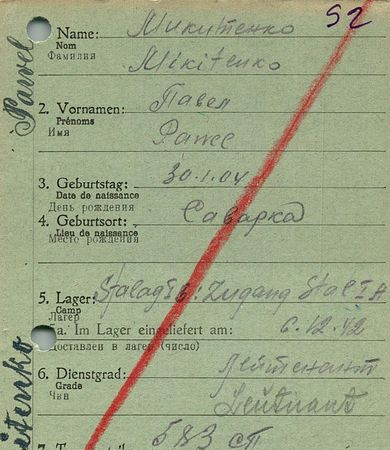 52
Name: Микитенко
Nom
Фамилия Mikitenko
2. Vornamen: Павел
Prénoms
Имя Pawel
3. Geburtstag: 30.1.04
Date de naissance
День рождения
4. Geburtsort: Саварка
Lieu de naissance
Место рождения
5. Lager: Stalag I B: Zugang Stal I A
Camp
Лагерь
a. Im Lager eingeliefert am: 6.12.42
Доставлен в лагерь (число)
6. Dienstgrad: Лейтенант
Grade
Чин Leutnant
583 сп
Pawel